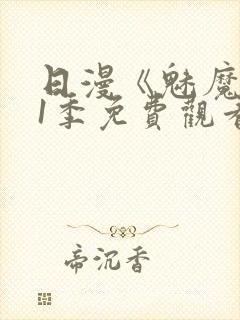 日漫《魅魔
1季免費觀看
帝沉香